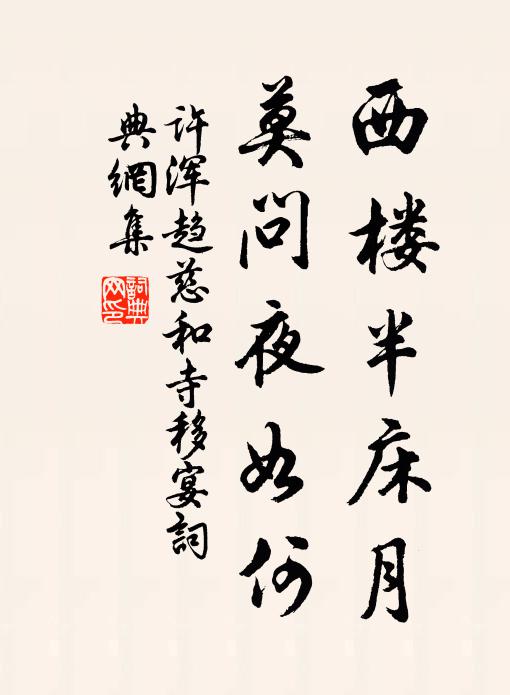 西楼半床月
莫问夜如何
许浑趋慈和寺移宴词
典網集
詞典网印